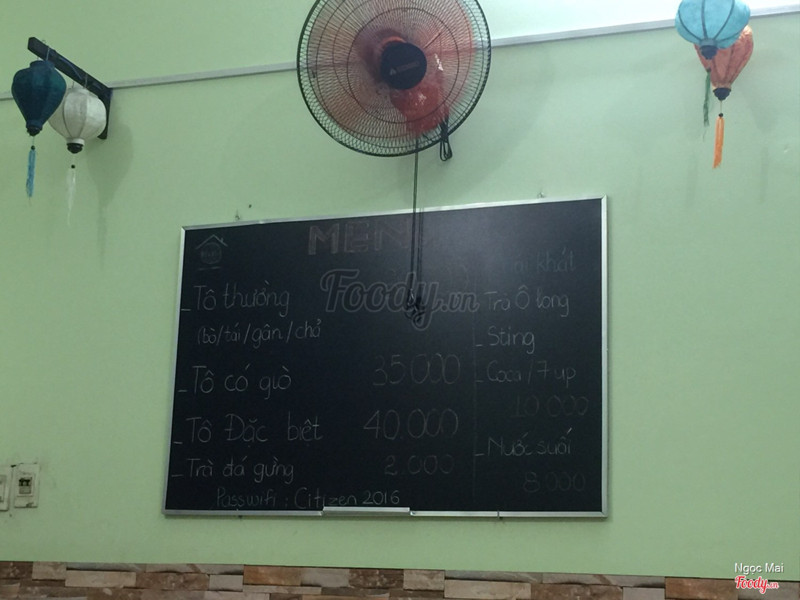 MENU
_Tô thường
(bò/tái/gân/chả
_Tô có giò 35.000
_Tô Đặc biệt 40.000
_Trà đá gừng 2.000
Passwifi: Citizen 2016
khát
_Trà Ô long
_Sting
_Coca/7up
10.000
_Nước suối
8.000
Foody.vn
Ngọc Mai
Foody.vn